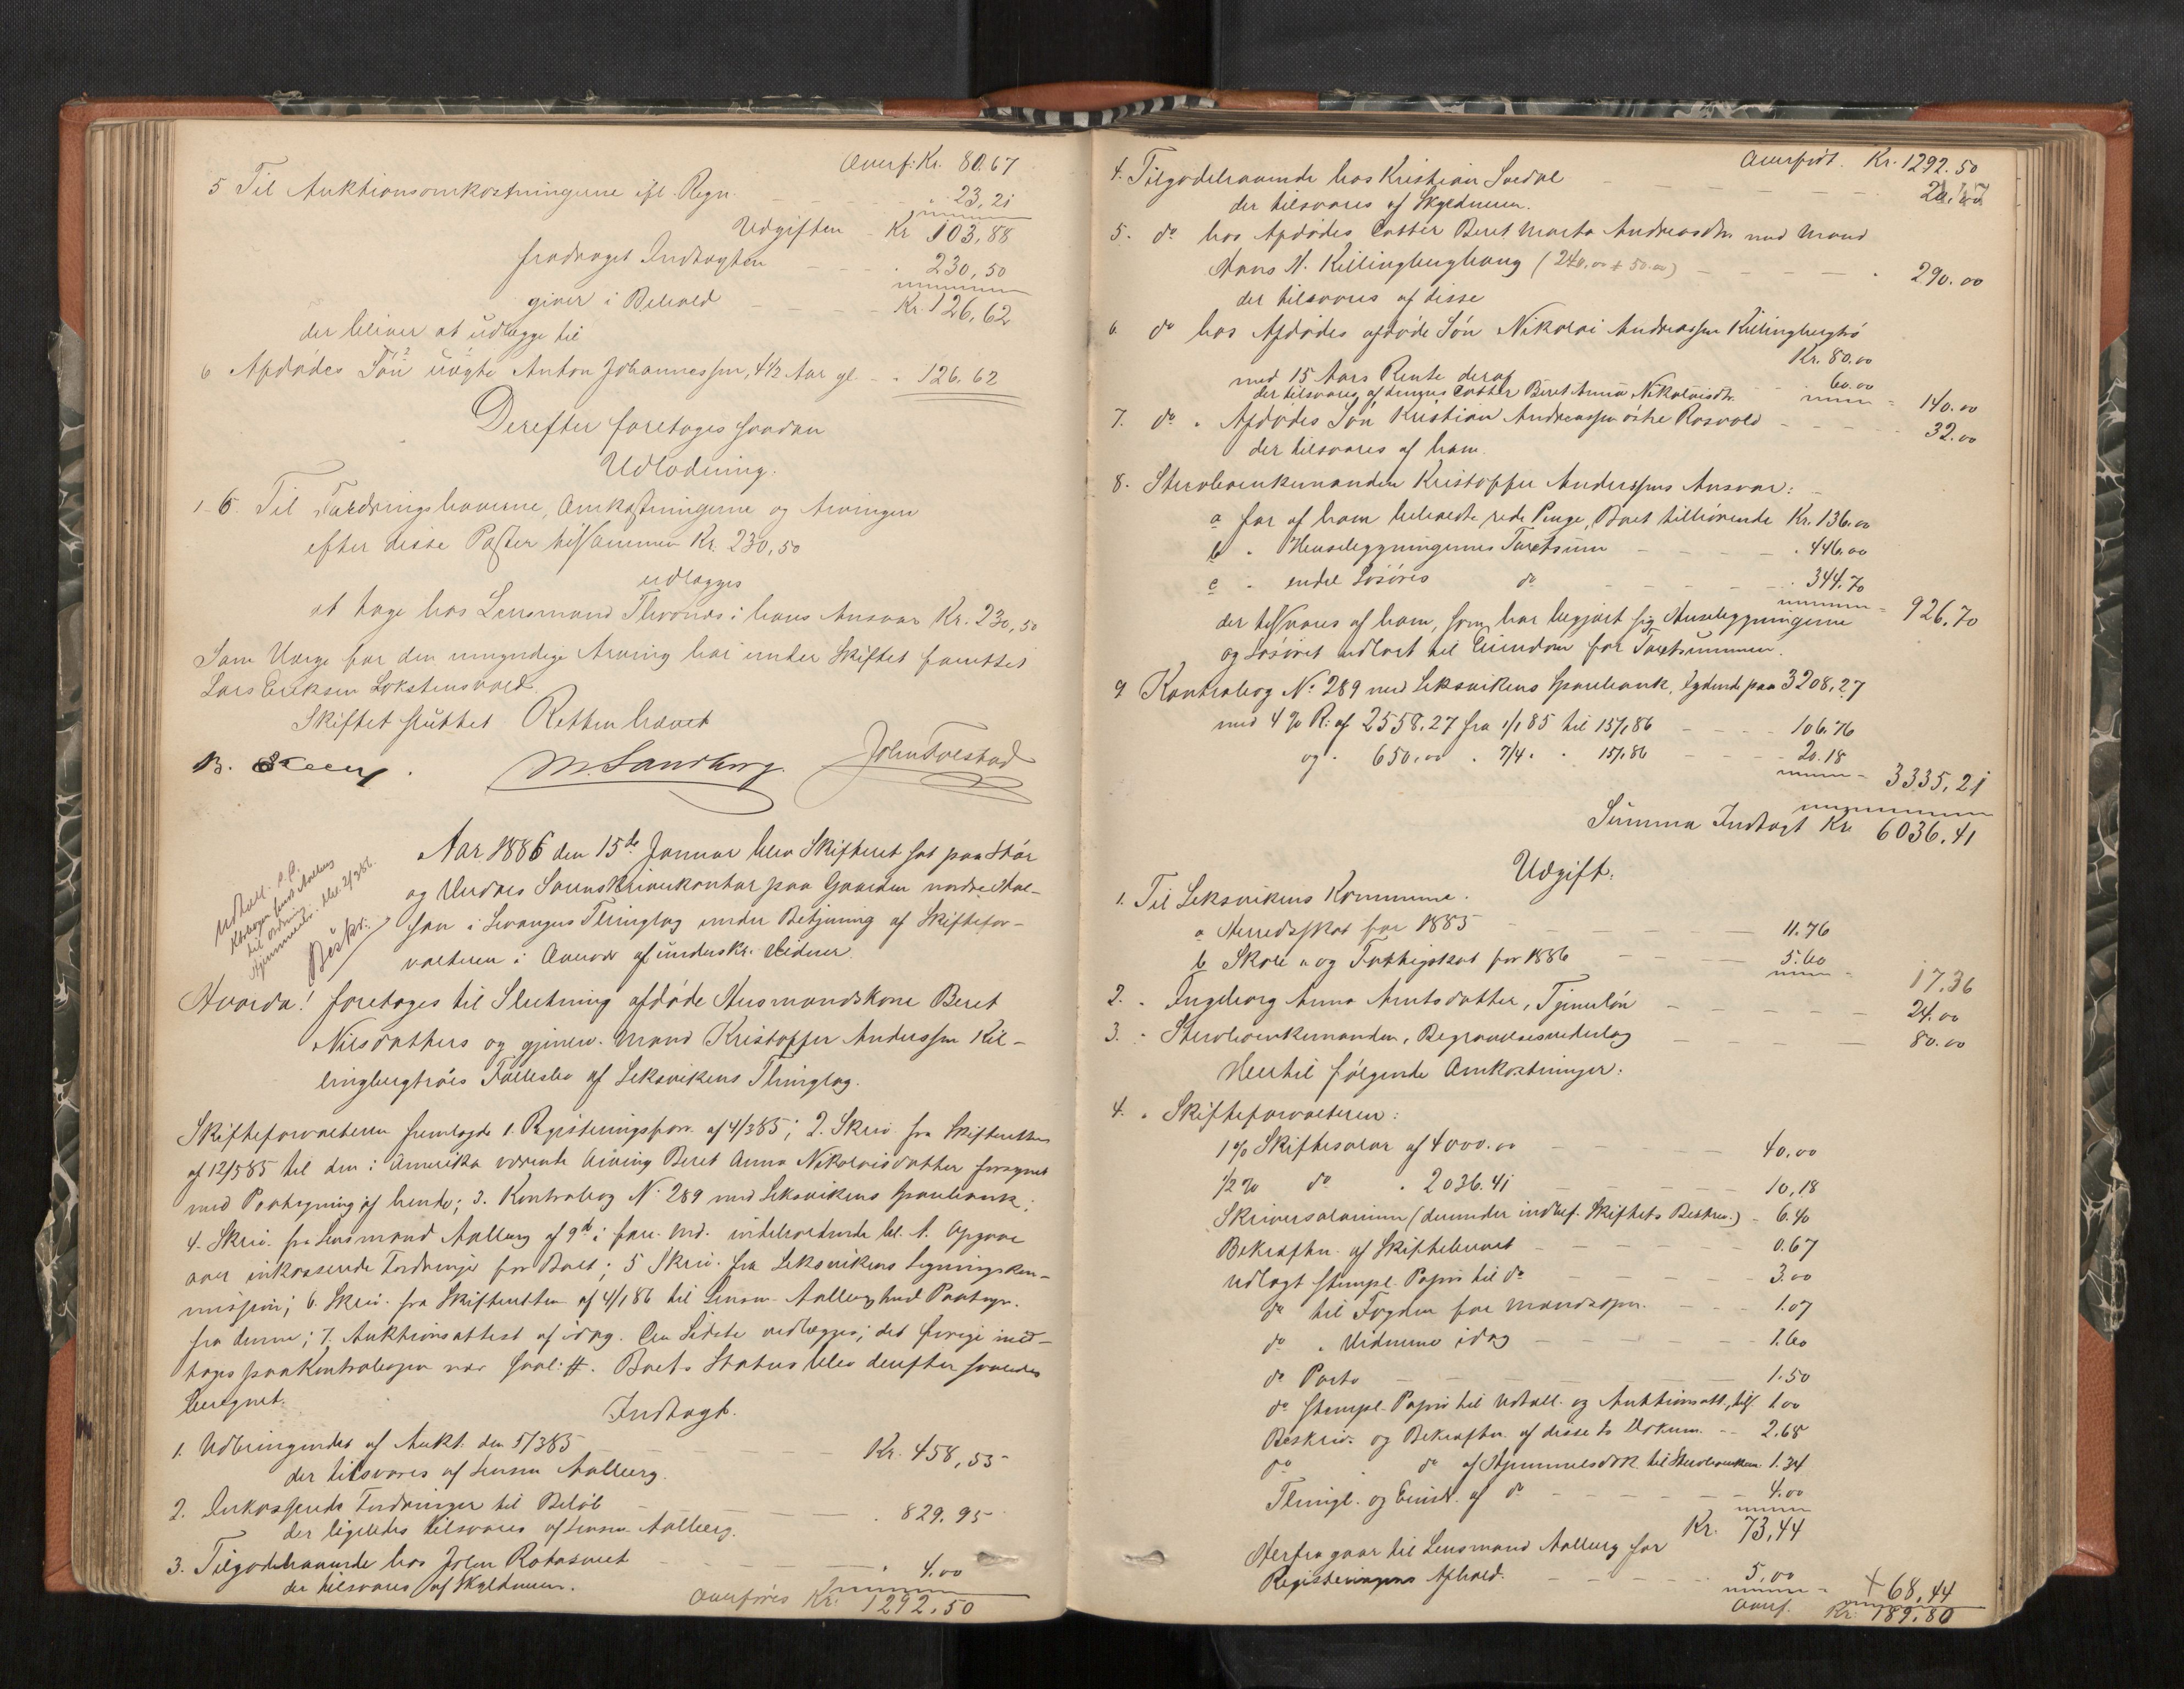 Overf: Kr. 80.67
5 Til Auktionsomkostningerne ifl. Regn. - - - 23,21
Udgiften - Kr 103,88
fradraget Indtægten - - - 230,50
giver i Behold - - Kr. 126,62
der bliver at udlægge til
6 Afdødes Søn uægte Anton Johannessen, 4½ Aar gl. - - 126.62
Derefter foretoges saadan
Udlodning.
1-6. Til Fordringshaverne, Omkostningerne og Arvingen
efter disse Poster tilsammen Kr. 230,50
udlægges
at tage hos Lensmand Thronds i hans Ansvar Kr. 230,50
Som Værge for den umyndige Arving har under Skiftet forrettet
Lars Eriksen Lokstensvold.
Skiftet sluttet Retten hævet
M. Sandberg. John Tvestad
Aar 1886 den 15de Januar blev Skifteret sat paa Stør
og Værdals Sorenskriverkontor paa Gaarden nordre Hal-
san i Levangers Thinglag under Betjening af Skiftefor-
valteren i Overvær af underskr. Vidner.
Udstall.
Beskr.
Hvorda! foretoges til Slutning afdøde Husmandskone Beret
Nilsdatters og gjenlev. Mand Kristoffer Anderssen Kil-
lingbergtrøes Fællesbo af Leksvikens Thinglag.
Skifteforvalteren fremlagde 1. Registeringsforr. af 4/3 85; 2. Skriv. fra Skifteretten
af 12/5 85 til den i Amerika værende Arving Beret Anna Nikolaisdatter forsynet
med Paategning af hende; 3. Kontrabog No 289 med Leksvikens Sparebank;
4. Skriv. fra Lensmand Aalberg af 9de i forr. Md. indeholdende bl. A. Opgave
over inkasserede Fordringer for Boet; 5 Skriv. fra Leksvikens Ligningskom-
mission; 6. Skriv. fra Skifteretten af 4/1 86 til Lensm. Aalberg med Paategn.
fra denne; 7. Auktionsattest af idag. Den Sidste vedlægges; det øvrige ind-
tages paa Kontrabogen nær saal: #. Boets Status blev derefter saaledes
beregnet.
Indtægt.
1. Udbringendet af Aukt. den 5/3 85 - - - Kr. 458,55
der tilsvares af Lensm Aalberg.
2. Inkasserede Fordringer til Beløb - - - 829.95
der ligeledes tilsvares af Lensm. Aalberg.
3. Tilgodehavende hos John Rotasmet - - - 4.00
der tilsvares af Skyldneren.
Overføres Kr. 1292.50
Overført. Kr. 1292.50
4. Tilgodehavende hos Kristian Svedal - - -
der tilsvares af Skyldneren.
5. do hos Afdødes Datter Beret Marta Andreasdtr. med Mand
Hans N. Killingberghaug (240.00 + 50.00) - - - 290.00
der tilsvares af disse
6 do hos Afdødes afdøde Søn Nikolai Andreassen Killingbergtrø
Kr. 80.00
med 15 Aars Rente deraf - - 60.00
der tilsvares af dennes Datter Beret Anna Nikolaisdtr. - 140.00
7. do " Afdødes Søn Kristian Andreassen østre Rosvold - - - 32.00
der tilsvares af ham.
8. Sterboenkemanden Kristoffer Anderssens Ansvar:
a for af ham beholdte rede Penge, Boet tilhørende Kr. 136.00
b " Huusebygningernes Taxtsum - - - 446.00
c " endel Løsøres do - - - 344.70
der tilsvares af ham, som har begjært sig Husebygningerne - 926.70
og Løsøret udlagt til Eiendom for Taxtsummen.
9 Kontrabog No 289 med Leksvikens Sparebank, lydende paa 3208.27
med 4 % R: af 2558.27 fra 1/1 85 til 15/1 86 - - - 106.76
og " 650.00 " 7/4 " " 15/1 86 - - - 20.18
- 3335,21
Summa Indtægt Kr 6036.41
Udgift.
1. Til Leksvikens Kommune.
a Herredsskat for 1885 - - - 11.76
b Skole- og Fattigskat for 1886 - - - 5.60
- 17.36
2. " Ingeborg Anna Arntsdatter, Tjenerløn - - - 24.00
3. " Sterboenkemanden, Begravelsesvederlag - - - 80.00
Hertil følgende Omkostninger:
4. " Skifteforvalteren:
1 % Skiftesalær af 4000.00 - - - 40.00
1/2 % do " 2036.41 - - - 10,18
Skriversalarium (derunder indbef. Skiftets Beskriv.) - 6.40
Bekræftn. af Skiftebrevet - - - 0.67
Udlagt stempl. Papir til do - - - 3.00
do til Fogden for Mandagn. - - - 1.07
do " Vidnerne idag - - - 1.60
do Porto - - - 1.50
do stempl. Papir til Udtall. og Auktionsatt., tils. 1.00
Beskriv. og Bekræftn. af disse to Dokum. - - 2.68
do " do af Hjemmelsdok. til Sterboenkem. 1.34
Thingl. og Eindr. af do - - - 4.00
Kr. 73,44
Herfra gaar til Lensmand Aalberg for
Registeringens Afhold. - - - 5.00
- + 68,44
Overf. Kr. 189.80